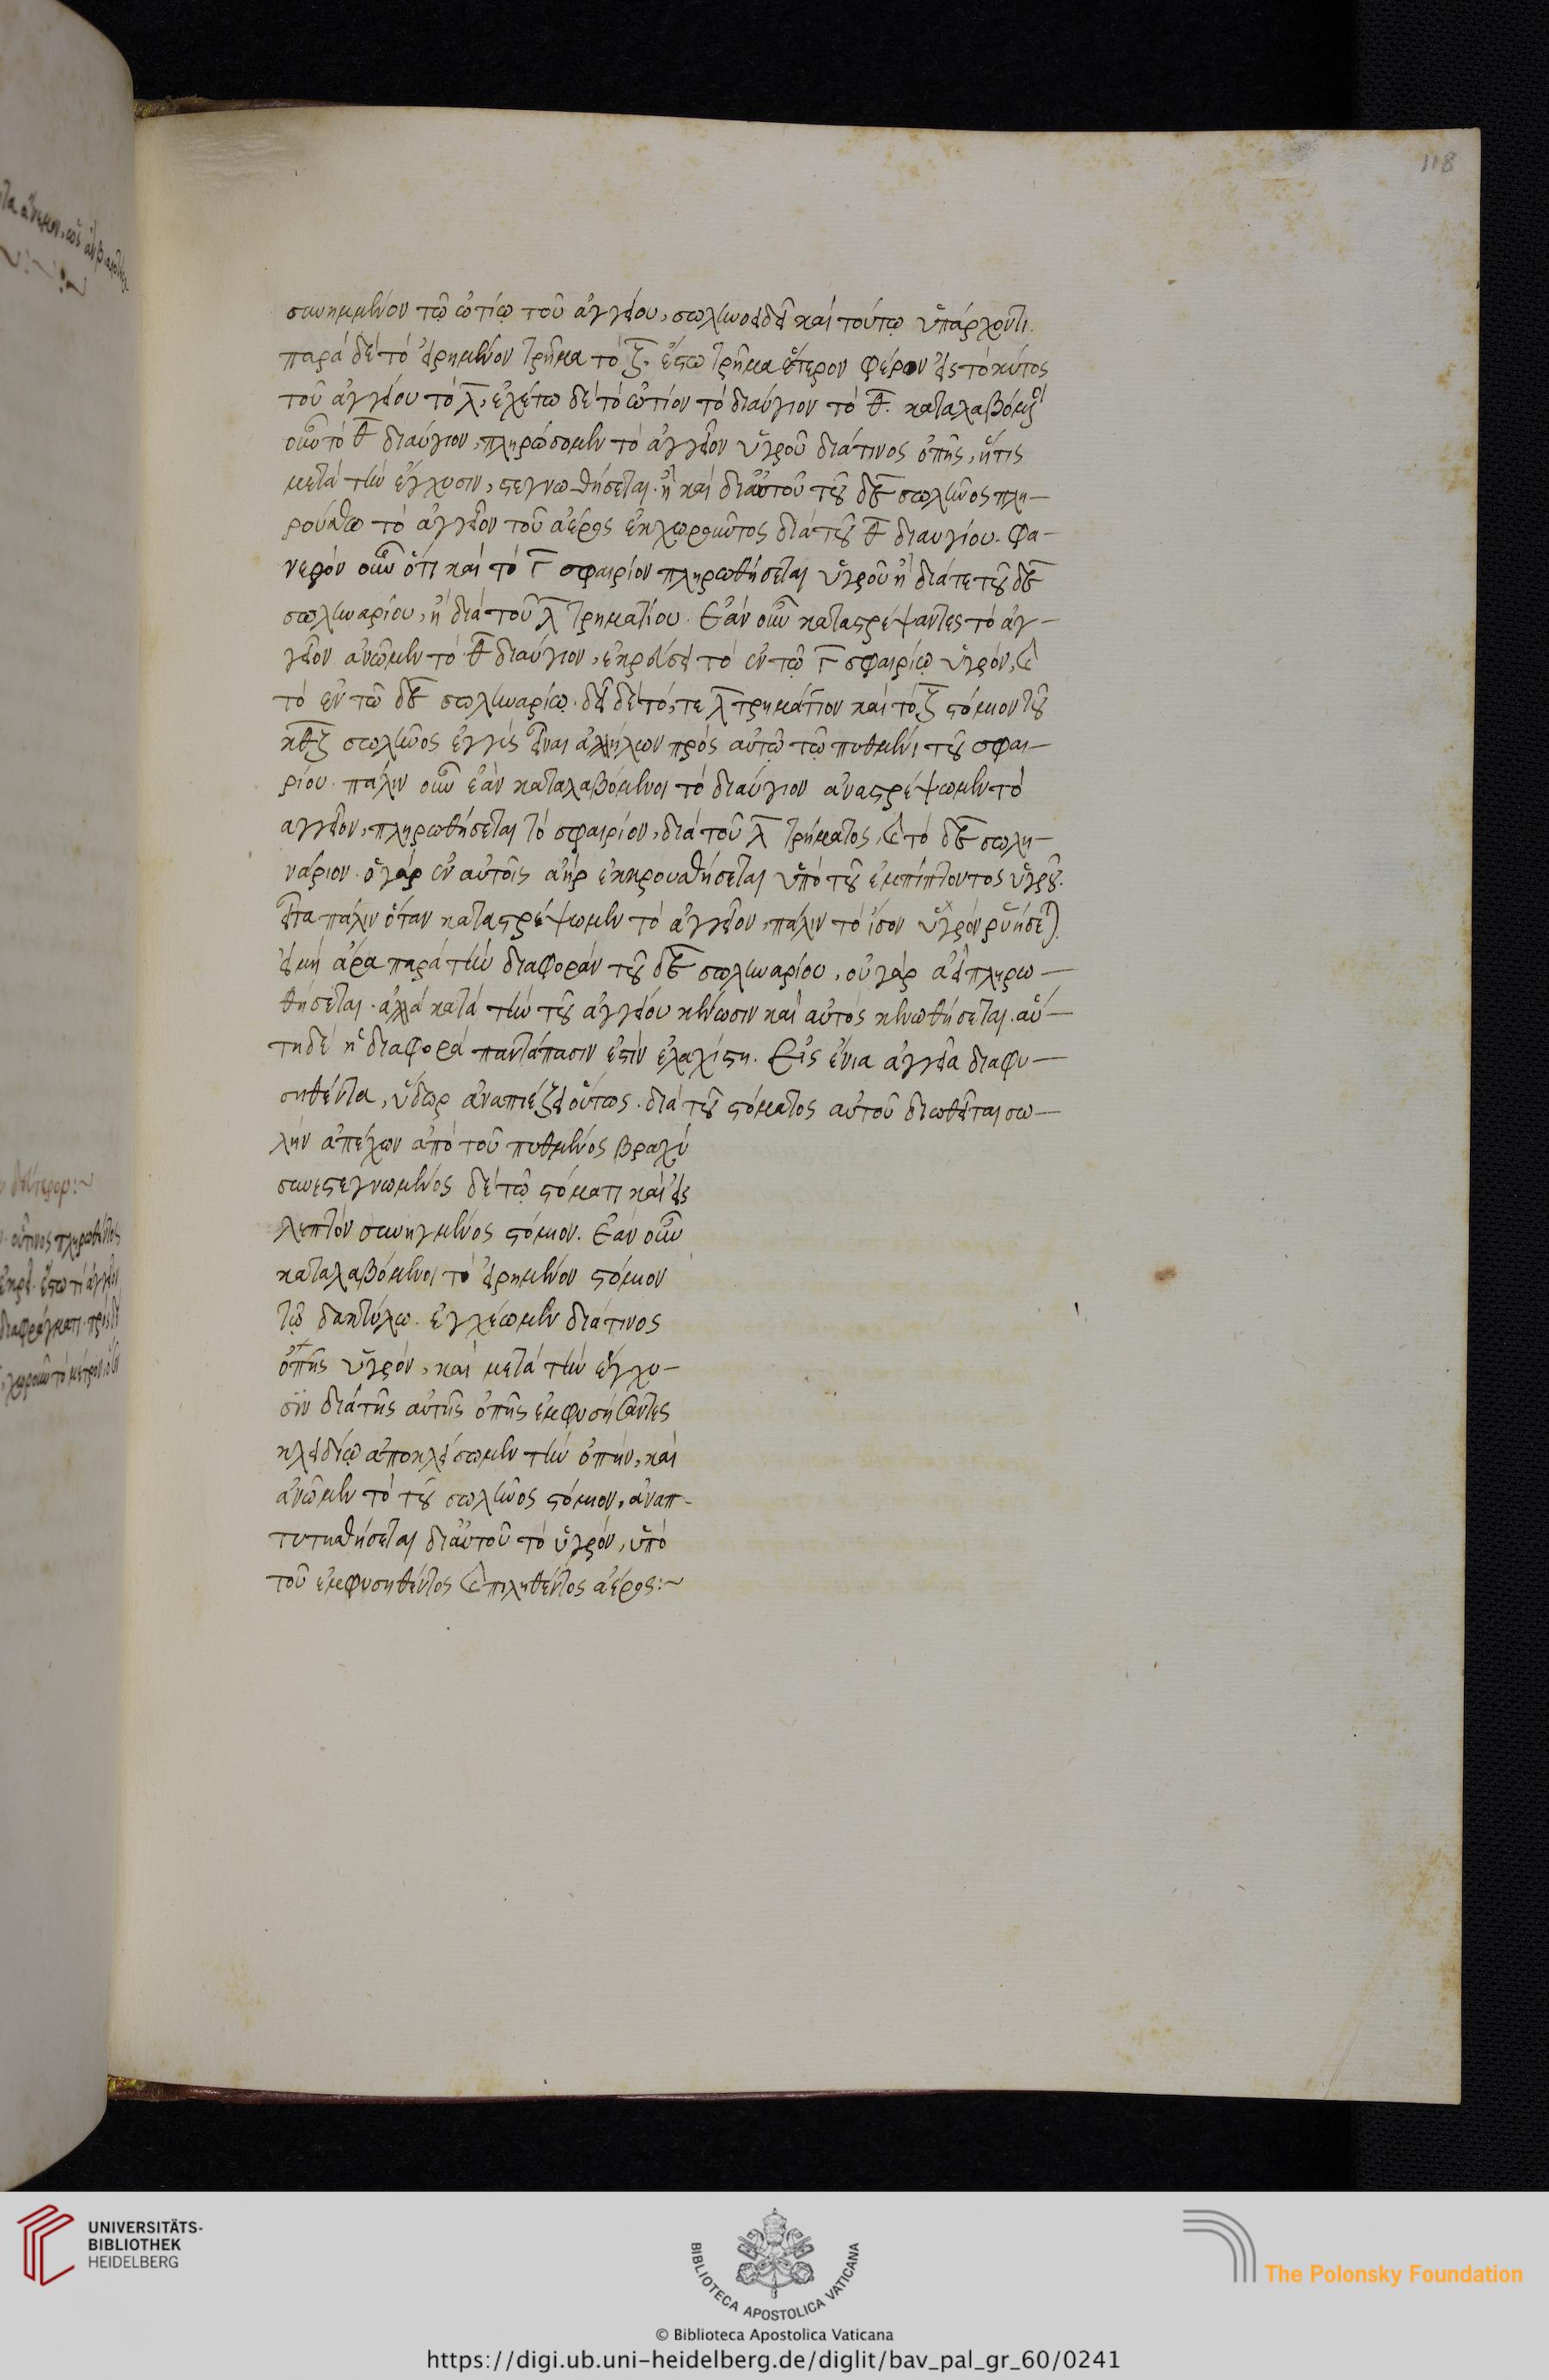 118
συνημμένον τῷ ὠτίῳ τοῦ ἀγγείου, σωληνοειδεῖ καὶ τούτῳ ὑπάρχοντι.
παρὰ δὲ τὸ εἰρημένον τρῆμα τὸ ζ. ἔστω τρῆμα ἕτερον φέρον εἰς τὸ κύτος
τοῦ ἀγγείου τὸ λ, ἐχέτω δὲ τὸ ὠτίον τὸ διαύγιον τὸ θ. καταλαβόμενοι
οὖν τὸ θ διαύγιον, πληρώσομεν τὸ ἀγγεῖον ὑγροῦ διά τινος ὀπῆς, ἥτις
μετὰ τὴν ἔγχυσιν, στεγνωθήσεται. ἢ καὶ δι' αὐτοῦ τοῦ δε σωλῆνος πλη-
ρούσθω τὸ ἀγγεῖον τοῦ ἀέρος ἐκχωροῦντος διὰ τοῦ θ διαυγίου. Φα-
νερὸν οὖν ὅτι καὶ τὸ Γ σφαιρίον πληρωθήσεται ὑγροῦ ἢ διά τε τοῦ δε
σωληναρίου, ἢ διὰ τοῦ λ τρηματίου. Ἐὰν οὖν καταστρέψαντες τὸ ἀγ-
γεῖον ἀνῶμεν τὸ θ διαύγιον, ἐκρεύσει τὸ ἐν τῷ Γ σφαιρίῳ ὑγρόν, καὶ
τὸ ἐν τῶ δε σωληναρίῳ. δεῖ δὲ τό, τε λ τρημάτιον καὶ τὸ ζ στόμιον τοῦ
κθζ σωλῆνος ἐγγὺς εἶναι ἀλλήλων πρὸς αὐτῷ τῷ πυθμένι τοῦ σφαι-
ρίου. πάλιν οὖν ἐὰν καταλαβόμενοι τὸ διαύγιον ἀναστρέψωμεν τὸ
αγγεῖον, πληρωθήσεται τὸ σφαιρίον, διὰ τοῦ λ τρήματος, καὶ τὸ δε σωλη-
νάριον. ὁ γὰρ ἐν αὐτοῖς ἀὴρ ἐκκρουσθήσεται ὑπὸ τοῦ ἐμπίπτοντος ὑγροῦ.
εἶτα πάλιν ὅταν καταστρέψωμεν τὸ ἀγγεῖον, πάλιν τὸ ἴσον ὑγρὸν ῥυήσεται.
εἰ μὴ ἄρα παρὰ τὴν διαφορὰν τοῦ δε σωληναρίου, οὐ γὰρ ἀεὶ πληρω-
θήσεται. ἀλλὰ κατὰ τὴν τοῦ ἀγγείου κένωσιν καὶ αὐτὸς κενωθήσεται. αὕ-
τη δὲ ἡ διαφορὰ παντάπασιν ἐστὶν ἐλαχίστη. Εἰς ἔνια ἀγγεῖα διαφυ-
σηθέντα, ὕδωρ ἀναπιέζει οὕτως. διὰ τοῦ στόματος αὐτοῦ διωθεῖται σω-
λὴν ἀπέχων ἀπὸ τοῦ πυθμένος βραχὺ
συνεστεγνωμένος δὲ τῷ στόματι καὶ εἰς
λεπτὸν συνηγμένος στόμιον. Ἐὰν οὖν
καταλαβόμενοι τὸ εἰρημένον στόμιον
τῷ δακτύλω. ἐγχέωμεν διά τινος
ὀπῆς ὑγρόν, καὶ μετὰ τὴν ἔγχυ-
σιν διὰ τῆς αὐτῆς ὀπῆς ἐμφυσήσαντες
κλειδίῳ ἀποκλείσωμεν τὴν ὀπήν, καὶ
ἀνῶμεν τὸ τοῦ σωλῆνος στόμιον, ἀναπ-
τυτισθήσεται δι' αὐτοῦ τὸ ὑγρόν, ὑπὸ
τοῦ ἐμφυσηθέντος καὶ πιληθέντος ἀέρος:~
UNIVERSITÄTS-
BIBLIOTHEK
HEIDELBERG
BIBLIOTECA APOSTOLICA VATICANA
The Polonsky Foundation
© Biblioteca Apostolica Vaticana
https://digi.ub.uni-heidelberg.de/diglit/bav_pal_gr_60/0241